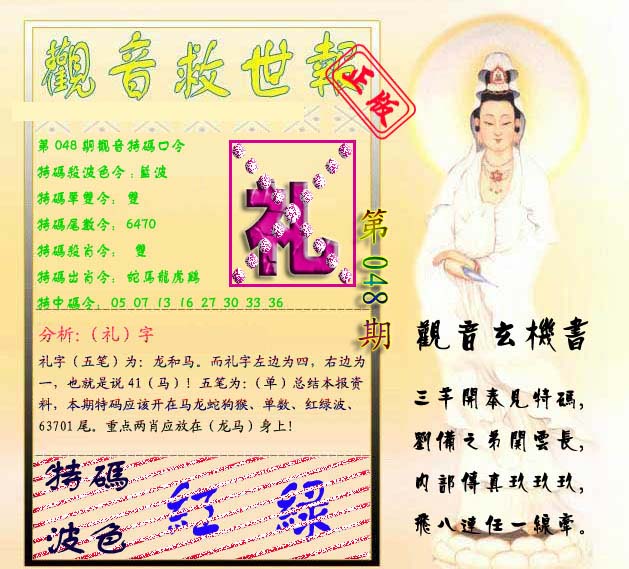 觀音救世報
正版
第048期觀音特碼口令
特碼殺波色令：藍波
特碼單雙令： 雙
特碼尾數令： 6470
特碼殺肖令： 雙
特碼出肖令： 蛇馬龍虎鷄
特中碼令： 05 07 13 16 27 30 33 36
礼
第048期
分析:（礼）字
礼字（五笔）为：龙和马。而礼字左边为四，右边为
一，也就是说 41（马）！五笔为：（单）总结本报资
料，本期特码应该开在马龙蛇狗猴、单数、红绿波、
63701 尾。重点两肖应放在（龙马）身上！
特碼
波色
紅 綠
觀音玄機書
三羊開泰見特碼，
劉備之弟關雲長，
内部傳真玖玖玖，
飛八達任一線牽。